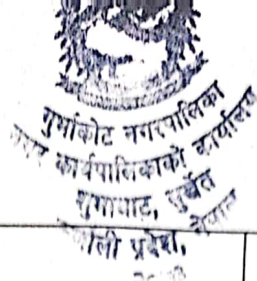 गुर्भाकोट नगरपालिका
नगर कार्यपालिकाको कार्यालय
शुभाघाट, सुर्खेत
प्रदेश, नेपाल